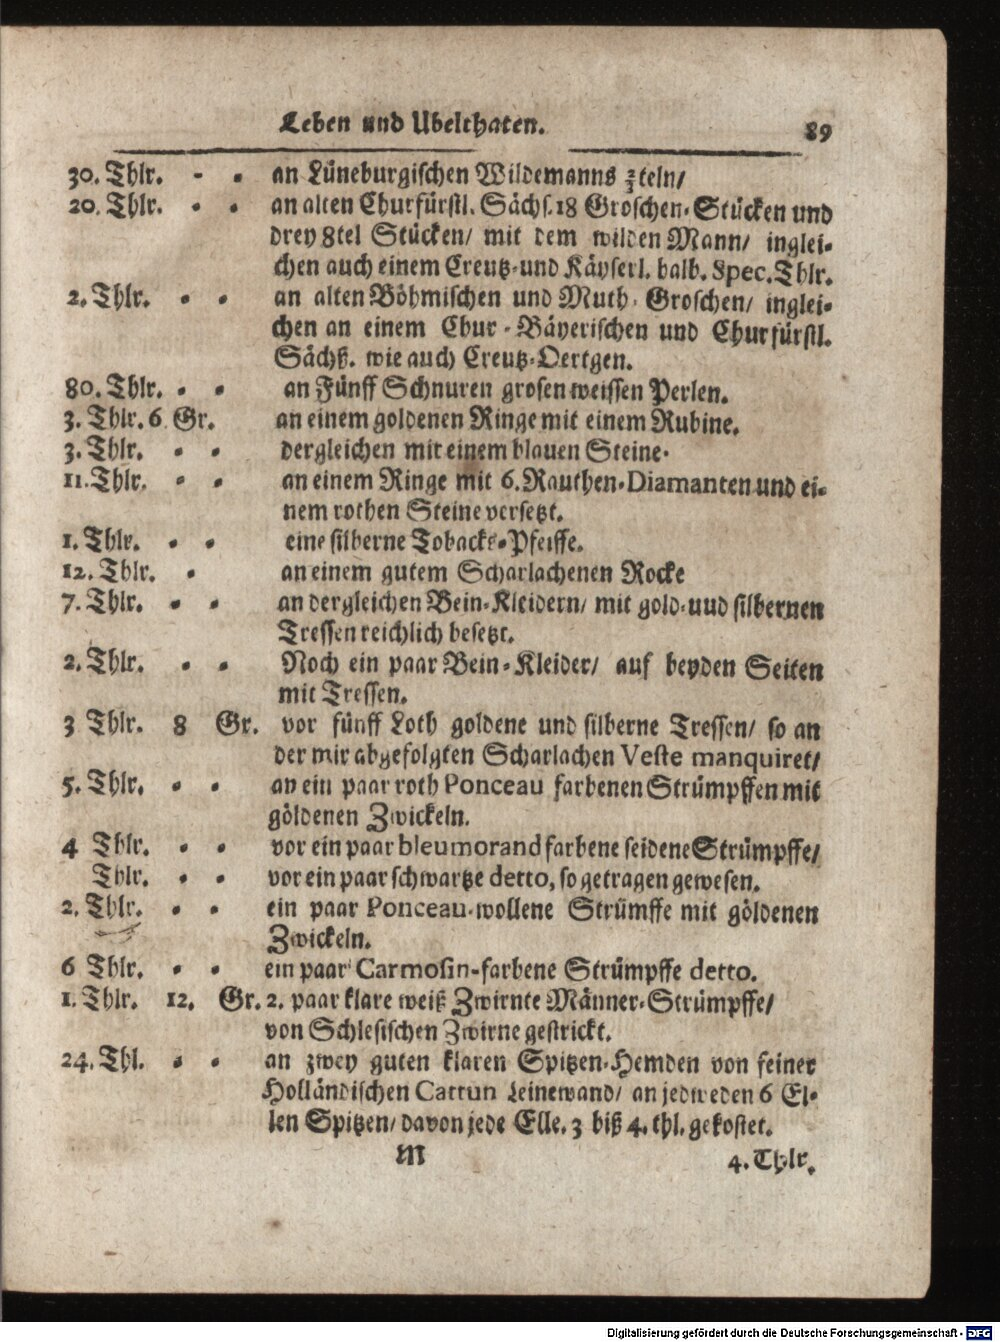 Leben und Ubelthaten. 89
30. Thlr. - - an Lüneburgischen Wildemanns ⅔teln/
20. Thlr. - - an alten Churfürstl. Sächs. 18 Groschen-Stücken und
drey 8tel Stücken/ mit dem wilden Mann/ inglei-
chen auch einem Creutz-und Käyserl. halb. Spec. Thlr.
2. Thlr. - - an alten Böhmischen und Muth-Groschen/ inglei-
chen an einem Chur-Bäyerischen und Churfürstl.
Sächß. wie auch Creutz-Oertgen.
80. Thlr. - - an Fünff Schnuren grosen weissen Perlen.
3. Thlr. 6 Gr. an einem goldenen Ringe mit einem Rubine.
3. Thlr. - - dergleichen mit einem blauen Steine.
11. Thlr. - - an einem Ringe mit 6. Rauthen-Diamanten und ei-
nem rothen Steine versetzt.
1. Thlr. - - eine silberne Tobacks-Pfeiffe.
12. Thlr. - an einem gutem Scharlachenen Rocke
7. Thlr. - - an dergleichen Bein-Kleidern/ mit gold-uud silbernen
Tressen reichlich besetzt.
2. Thlr. - - Noch ein paar Bein-Kleider/ auf beyden Seiten
mit Tressen.
3 Thlr. 8 Gr. vor fünff Loth goldene und silberne Tressen/ so an
der mir abgefolgten Scharlachen Veste manquiret/
5. Thlr. - - an ein paar roth Ponceau farbenen Strümpffen mit
göldenen Zwickeln.
4 Thlr. - - vor ein paar bleumorand farbene seidene Strümpffe/
Thlr. - - vor ein paar schwartze detto, so getragen gewesen.
2. Thlr. - - ein paar Ponceau-wollene Strümffe mit göldenen
Zwickeln.
6 Thlr. - - ein paar Carmosin-farbene Strümpffe detto.
1. Thlr. 12. Gr. 2. paar klare weiß Zwirnte Männer-Strümpffe/
von Schlesischen Zwirne gestrickt.
24. Thl. - - an zwey guten klaren Spitzen-Hemden von feiner
Holländischen Cattun Leinewand/ an jedweden 6 El-
len Spitzen/ davon jede Elle. 3 biß 4. thl. gekostet.
M 4. Thlr.
Digitalisierung gefördert durch die Deutsche Forschungsgemeinschaft - DFG